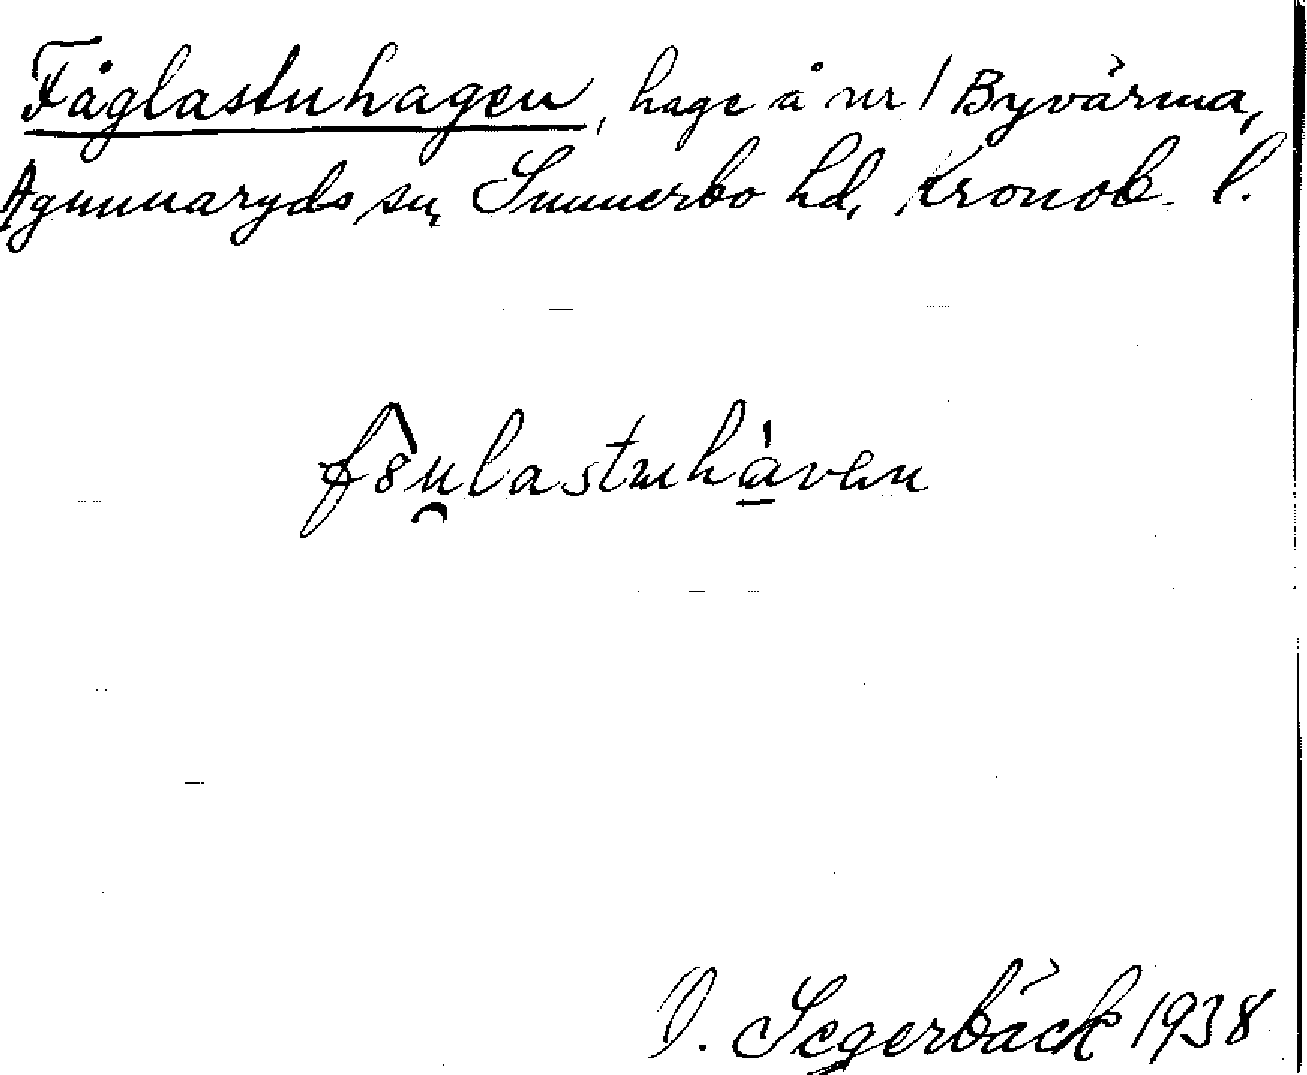 Fåglastuhagen, hage å nr 1 Byvärma,
Agunnaryds sn, Sunnerbo hd, Kronob. l.
fòu̯lastuhàven
O. Segerbäck 1938